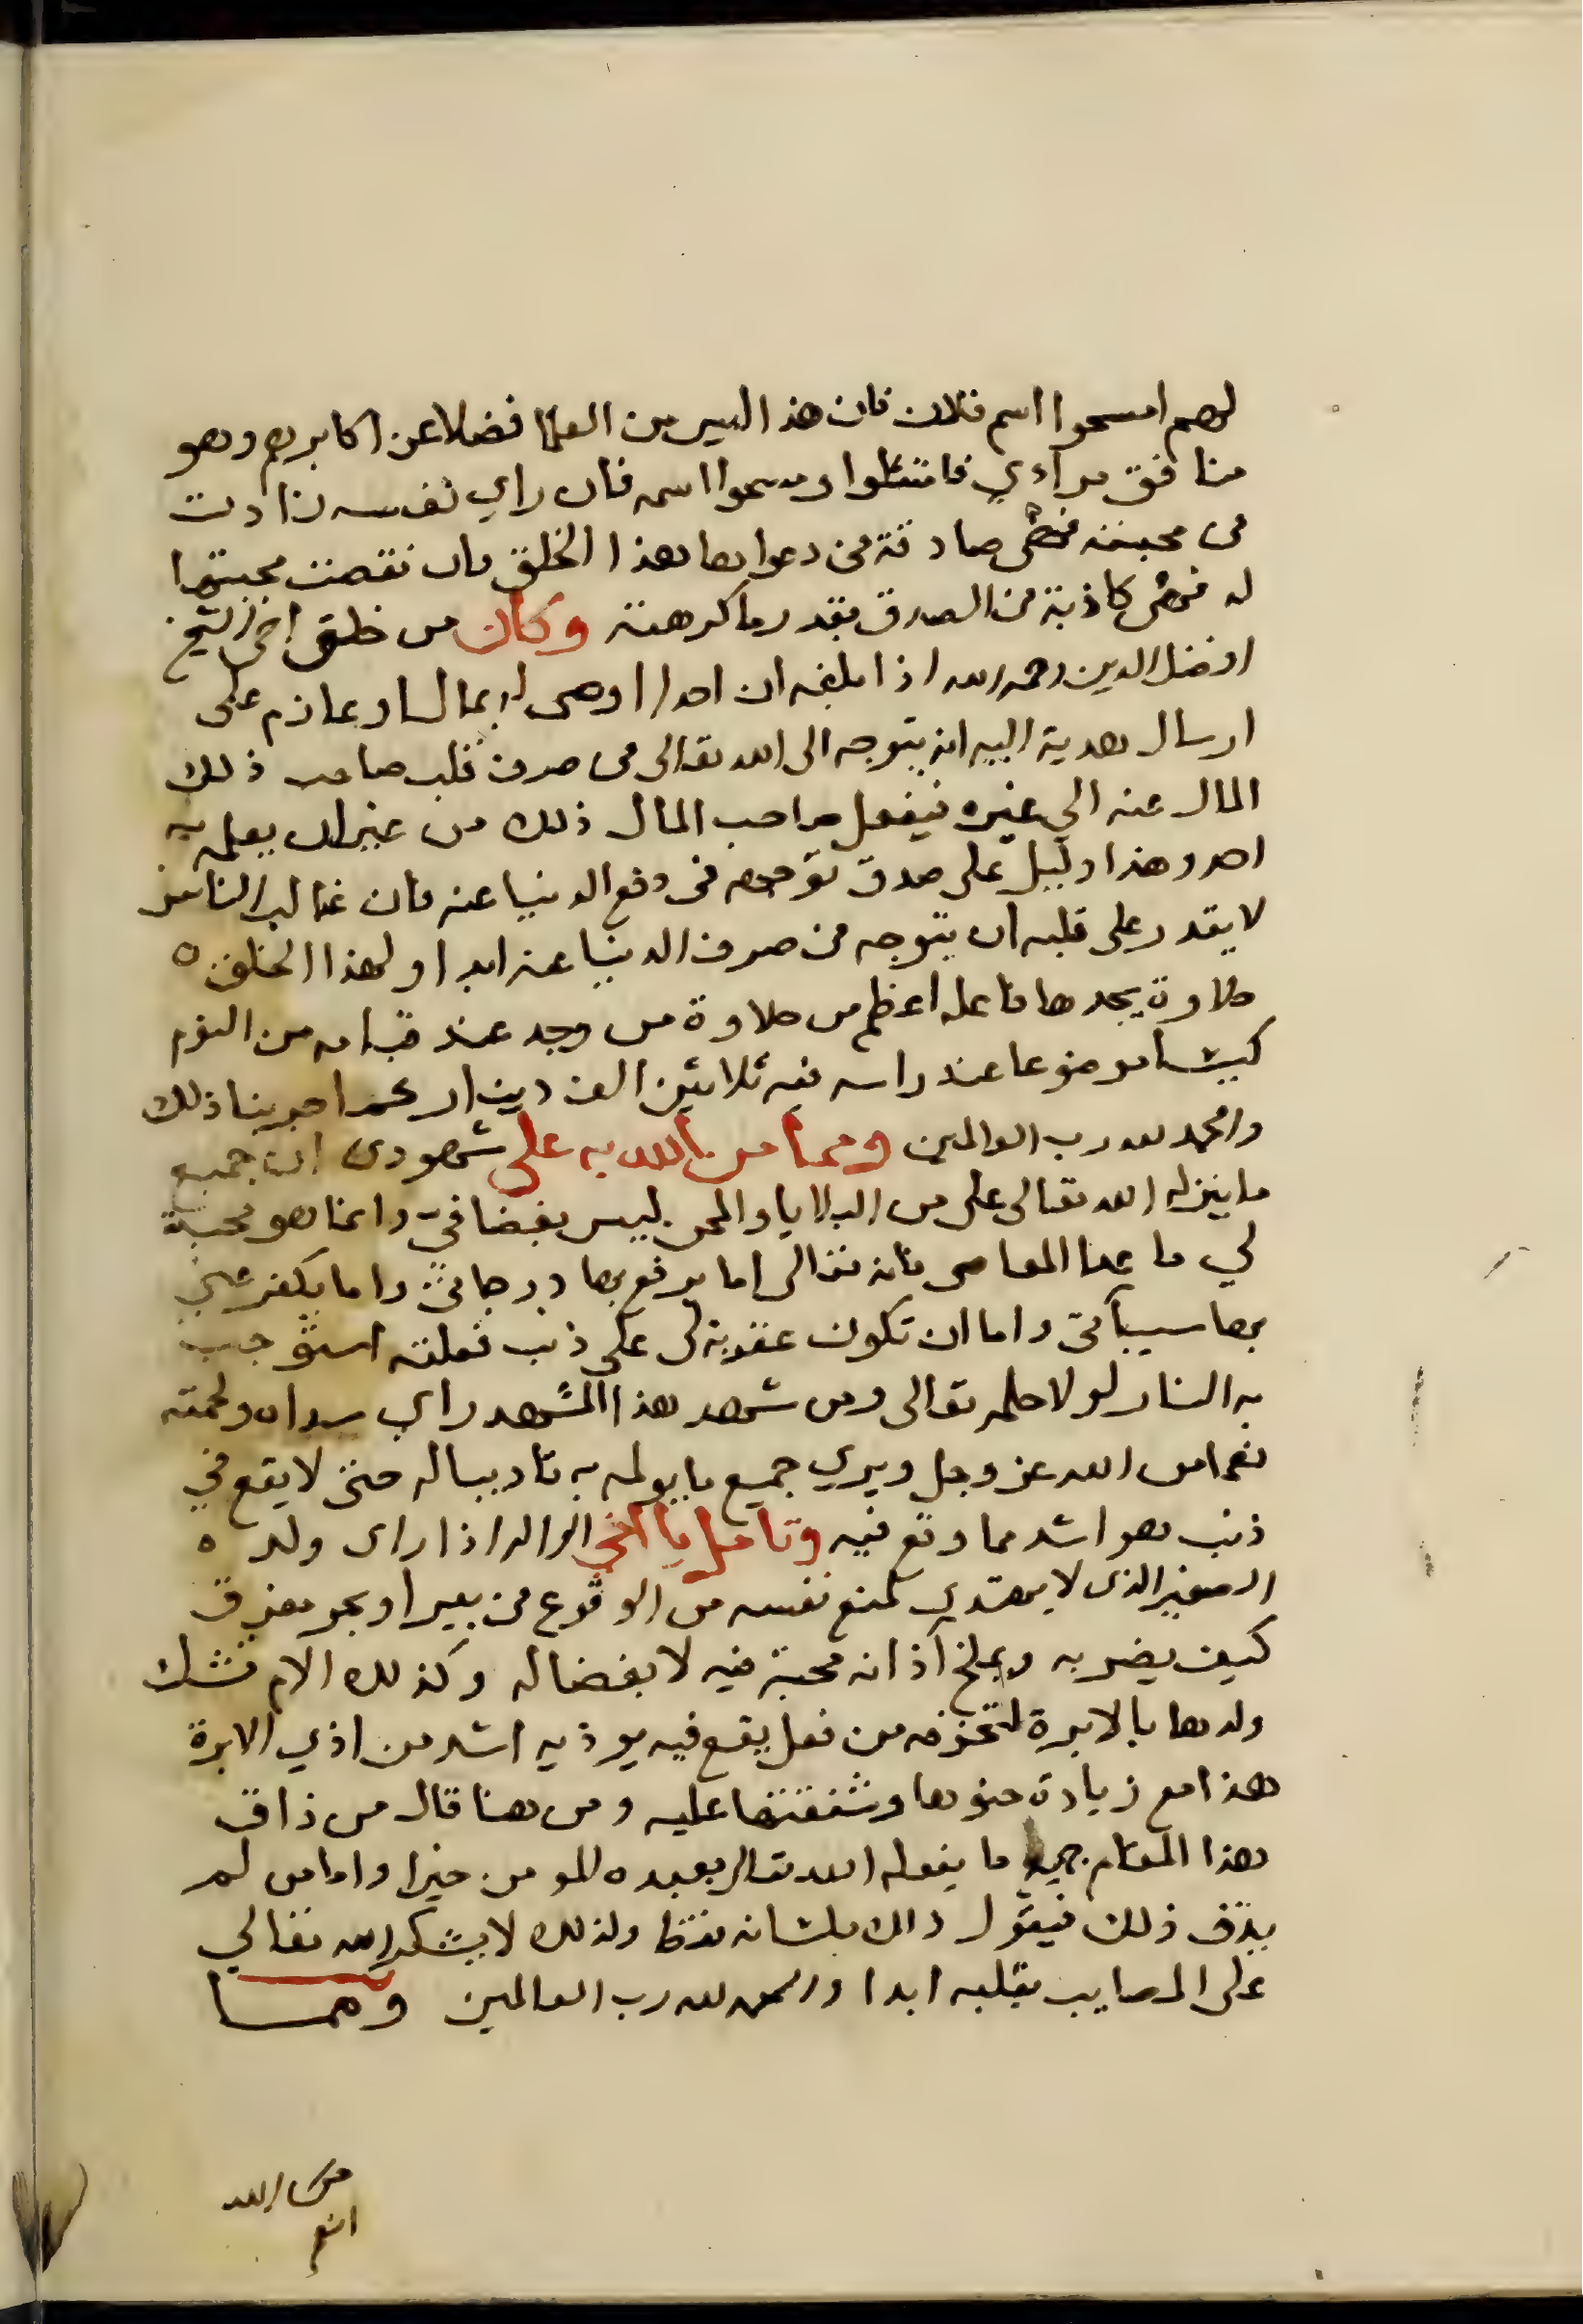 لهم امسحوا اسم فلان فان هذا ليس من العلما فضلا عن اكابرهم وهو
منافق مراءي فامتثلوا ومسحوا اسمه فان راي نفسه زادت
في محبته فهي صادقة في دعواها هذا الخلق وان نقصت محبتها
له فهي كاذبة في الصدق بقدر ما كرهته وكان من خلق اخي الشيخ
افضل الدين رحمه الله اذا بلغه ان احدا اوصى له بمال او عازم على
ارسال هدية اليه انه يتوجه الى الله تعالى في صرف قلب صاحب ذلك
المال عنه الي غيره فيفعل صاحب المال ذلك من غير ان يعلم به
احد وهذا دليل على صدق توجهه في دفع الدنيا عنه فان غالب الناس
لا يقدر على قلبه ان يتوجه في صرف الدنيا عنه ابدا ولهذا الخلق ه
حلاوة يجدها فاعله اعظم من حلاوة من وجد عند قيامه من النوم
كيسا موضوعا عند راسه فيه ثلاثين الف دينار كما جربنا ذلك
والحمد لله رب العالمين ومما من الله به علي شهودي ان جميع
ما ينزله الله تعالى علي من البلايا والمحن ليس بغضا فيّ وانما هو محبة
لي ما عدا المعاصي فانه تعالى اما يرفع بها درجاتي واما يكفر عني
بها سيآتي واما ان تكون عقوبة لي على ذنب فعلته استوجب
به النار لولا حلمه تعالى ومن شهد هذا المشهد راي سداه ولحمته
نعما من الله عز وجل ويري جميع ما يولمه به تاديبا له حتى لا يقع في
ذنب هو اشد مما وقع فيه وتامل يا اخي الوالد اذا راى ولده
الصغير الذى لا يهتدي لمنع نفسه من الوقوع في بير او بحر مغرق
كيف يضربه ويملخ آذانه محبة فيه لا بغضا له وكذلك الام تشك
ولدها بالابرة لتخوفه من فعل يقع فيه يوذيه اشد من اذي الابرة
هذا مع زيادة حنوها وشفقتها عليه ومن هنا قال من ذاق
هذا المقام جميع ما يفعله الله تعالى بعبده المومن خيرا واما من لم
يذق ذلك فيقول ذلك بلسانه فقط ولذلك لا يشكر الله تعالي
على المصايب بقلبه ابدا والحمد لله رب العالمين ومما
من الله
انعم